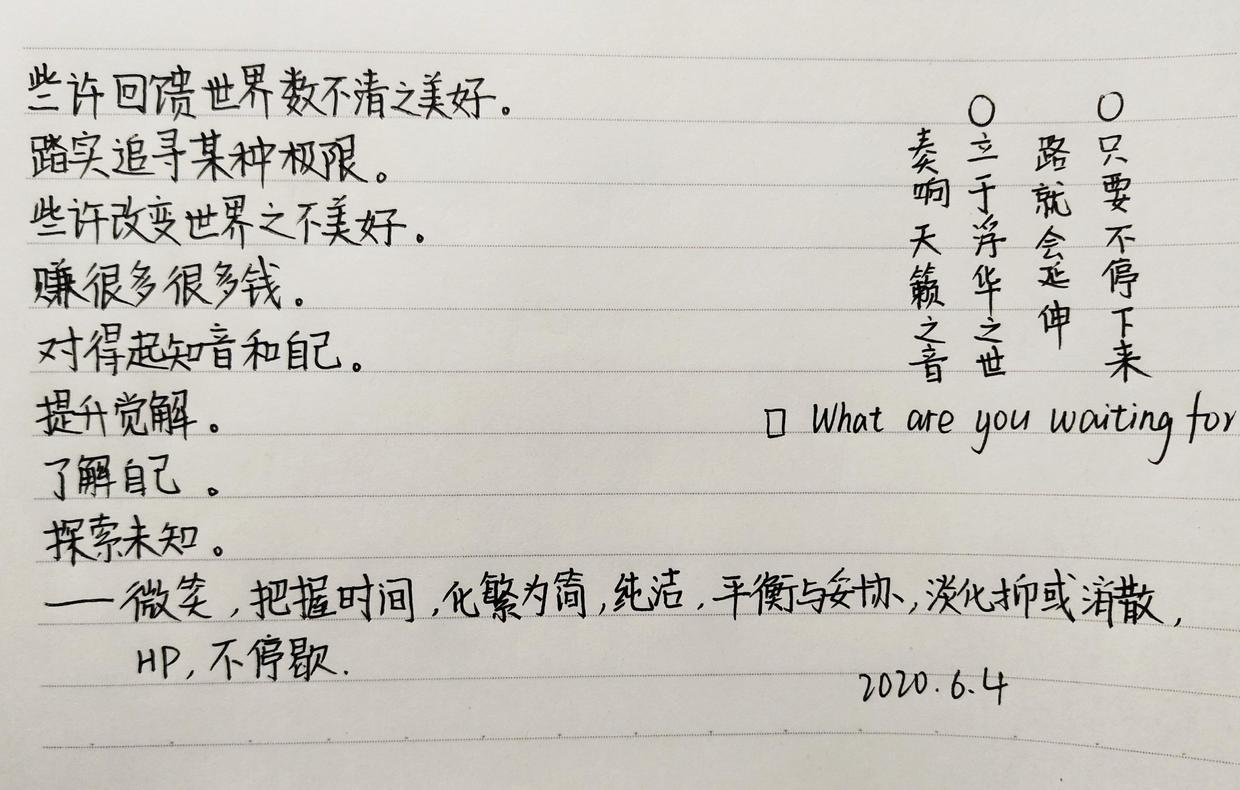 些许回馈世界数不清之美好。
踏实追寻某种极限。
些许改变世界之不美好。
赚很多很多钱。
对得起知音和自己。
提升觉解。
了解自己。
探索未知。
——微笑，把握时间，化繁为简，纯洁，平衡与妥协，淡化抑或消散，
HP，不停歇.
○只要不停下来
路就会延伸
○立于浮华之世
奏响天籁之音
□ What are you waiting for
2020.6.4